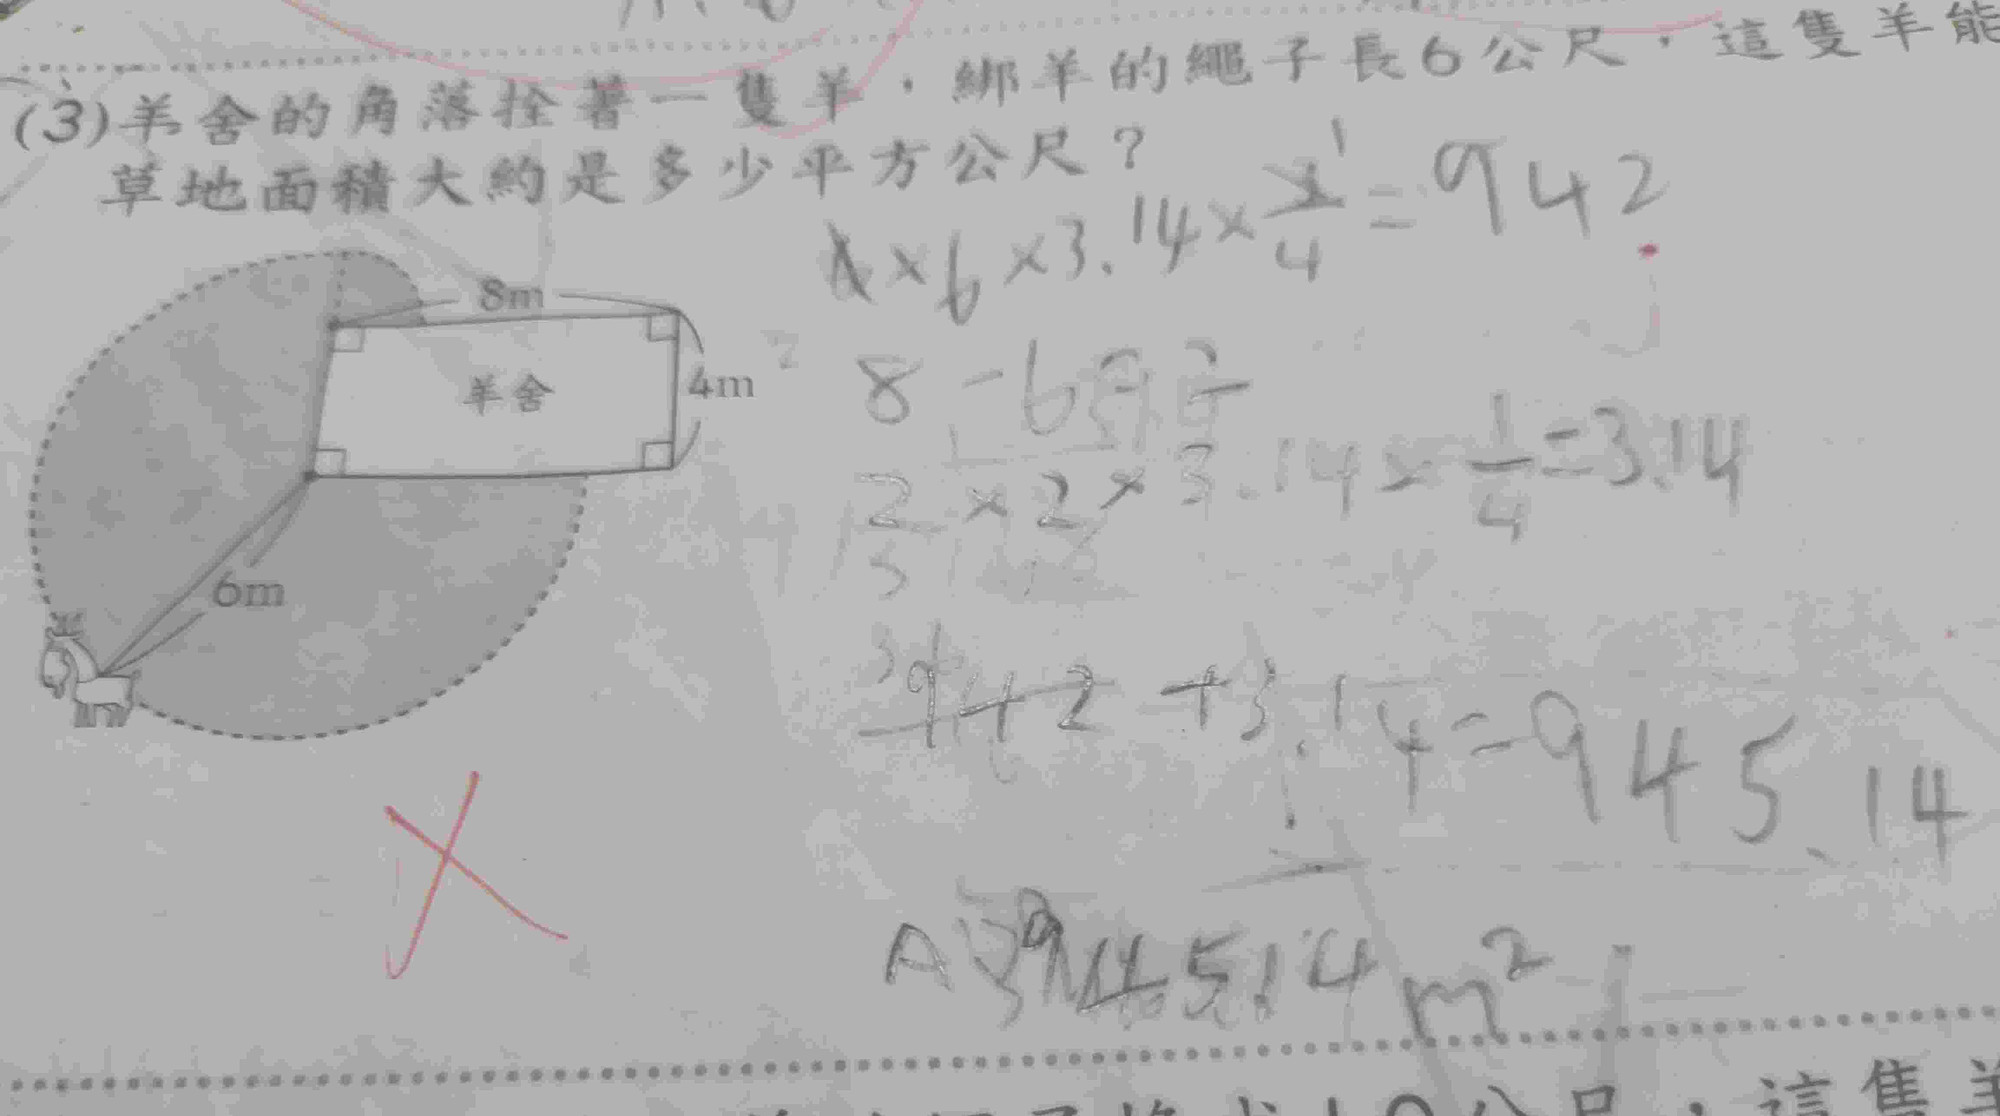 (3)羊舍的角落拴著一隻羊，綁羊的繩子長6公尺，這隻羊能
草地面積大約是多少平方公尺？
×6×3.14× /4=942
8m
羊舍
4m
6m
8-6=2
2×2×3.14×1/4=3.14
942+3.14=945.14
A 945.14m²
公尺，這隻羊